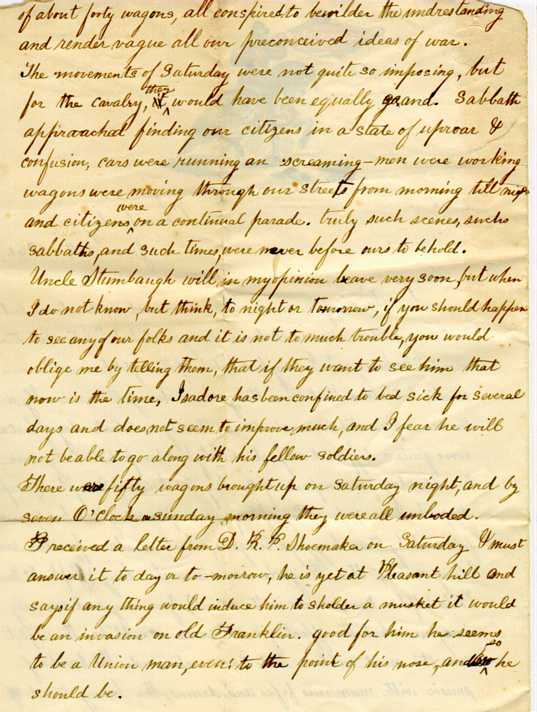 of about forty wagons, all conspired to bewilder the understanding
and render vague all our preconceived ideas of war.
The movements of Saturday were not quite so imposing, but
for the cavalry, they would have been equally grand. Sabbath
approached finding our citizens in a state of uproar &
confusion, cars were running an screaming - men were working
wagons were moving through our streets from morning till night
and citizens were on a continual parade. truly such scenes, such
sabbaths, and such times, were never before ours to behold.
Uncle Stumbaugh will, in my opinion leave very soon, but when
I do not know, but think, to night or tomorrow, if you should happen
to see any of our folks and it is not to much trouble, you would
oblige me by telling them, that if they want to see him that
now is the time, Isadore has been confined to bed sick for several
days and does not seem to improve much, and I fear he will
not be able to go along with his fellow soldiers.
There were fifty wagons brought up on Saturday night, and by
seven O'clock sunday morning they were all unloded.
I received a letter from D. K. P. Shoemaker on Saturday & must
answer it to day or to-morrow, he is yet at Pleasant hill and
says if any thing would induce him to sholder a musket it would
be an invasion on old Franklin. good for him he seems
to be a Union man, even to the point of his nose, and so he
should be.